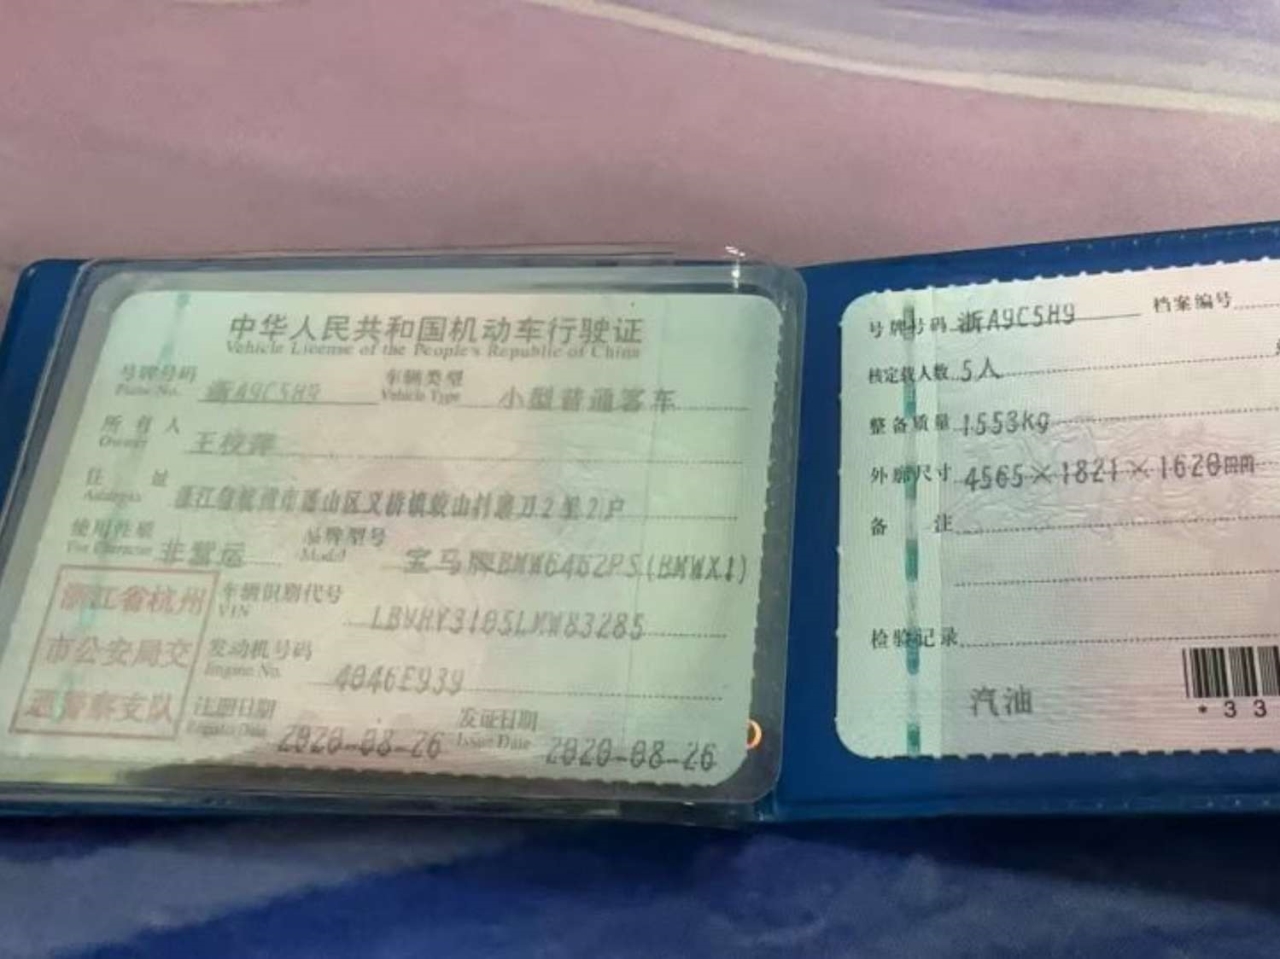 中华人民共和国机动车行驶证
Vehicle License of the People's Republic of China
号牌号码 浙A9C5H9 车辆类型 小型普通客车
Plate No. Vehicle Type
所有人 王校萍
Owner
住址 浙江省杭州市萧山区义桥镇 山村 2 2户
Address
使用性质 非营运 品牌型号 宝马牌BMW6462PS(BMWX1)
Use Character Model
浙江省杭州
市公安局交
通警察支队
车辆识别代号 LBVHY3105LMW83285
VIN
发动机号码 4046E939
Engine No.
注册日期 2020-08-26 发证日期 2020-08-26
Register Date Issue Date
号牌号码 浙A9C5H9 档案编号
核定载人数 5人
整备质量 1553kg
外廓尺寸 4565×1821×1620mm
备注
检验记录
汽油
*33